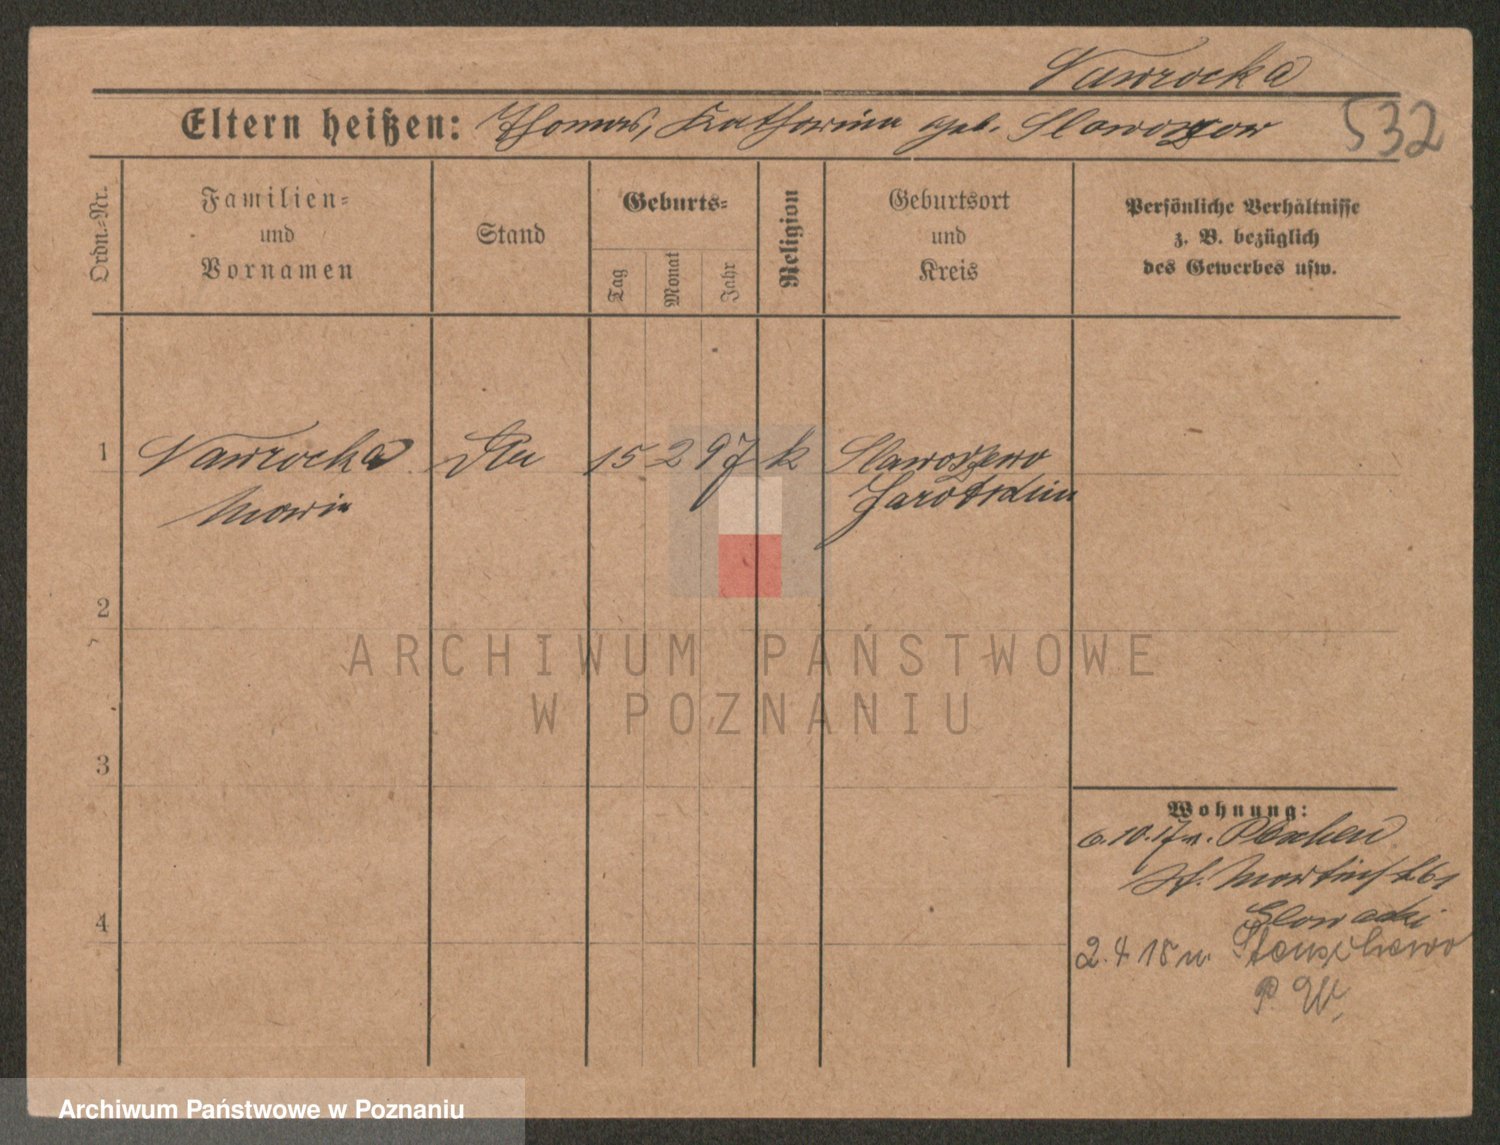 Nawrocka
Eltern heißen: Thomas, Katharina geb.
532
Ordn.-Nr.
Familien-
und
Vornamen
Stand
Geburts-
Tag
Monat
Jahr
Religion
Geburtsort
und
Kreis
Persönliche Verhältnisse
z. B. bezüglich
des Gewerbes usw.
1
Nawrocka 15 2 97 k Slawoszewo
Maria Jarotschin
2
ARCHIWUM PAŃSTWOWE
W POZNANIU
3
Wohnung:
6.10.17 n.
St. Martinst. 61
4
2.4.18 n.
P. W.
Archiwum Państwowe w Poznaniu